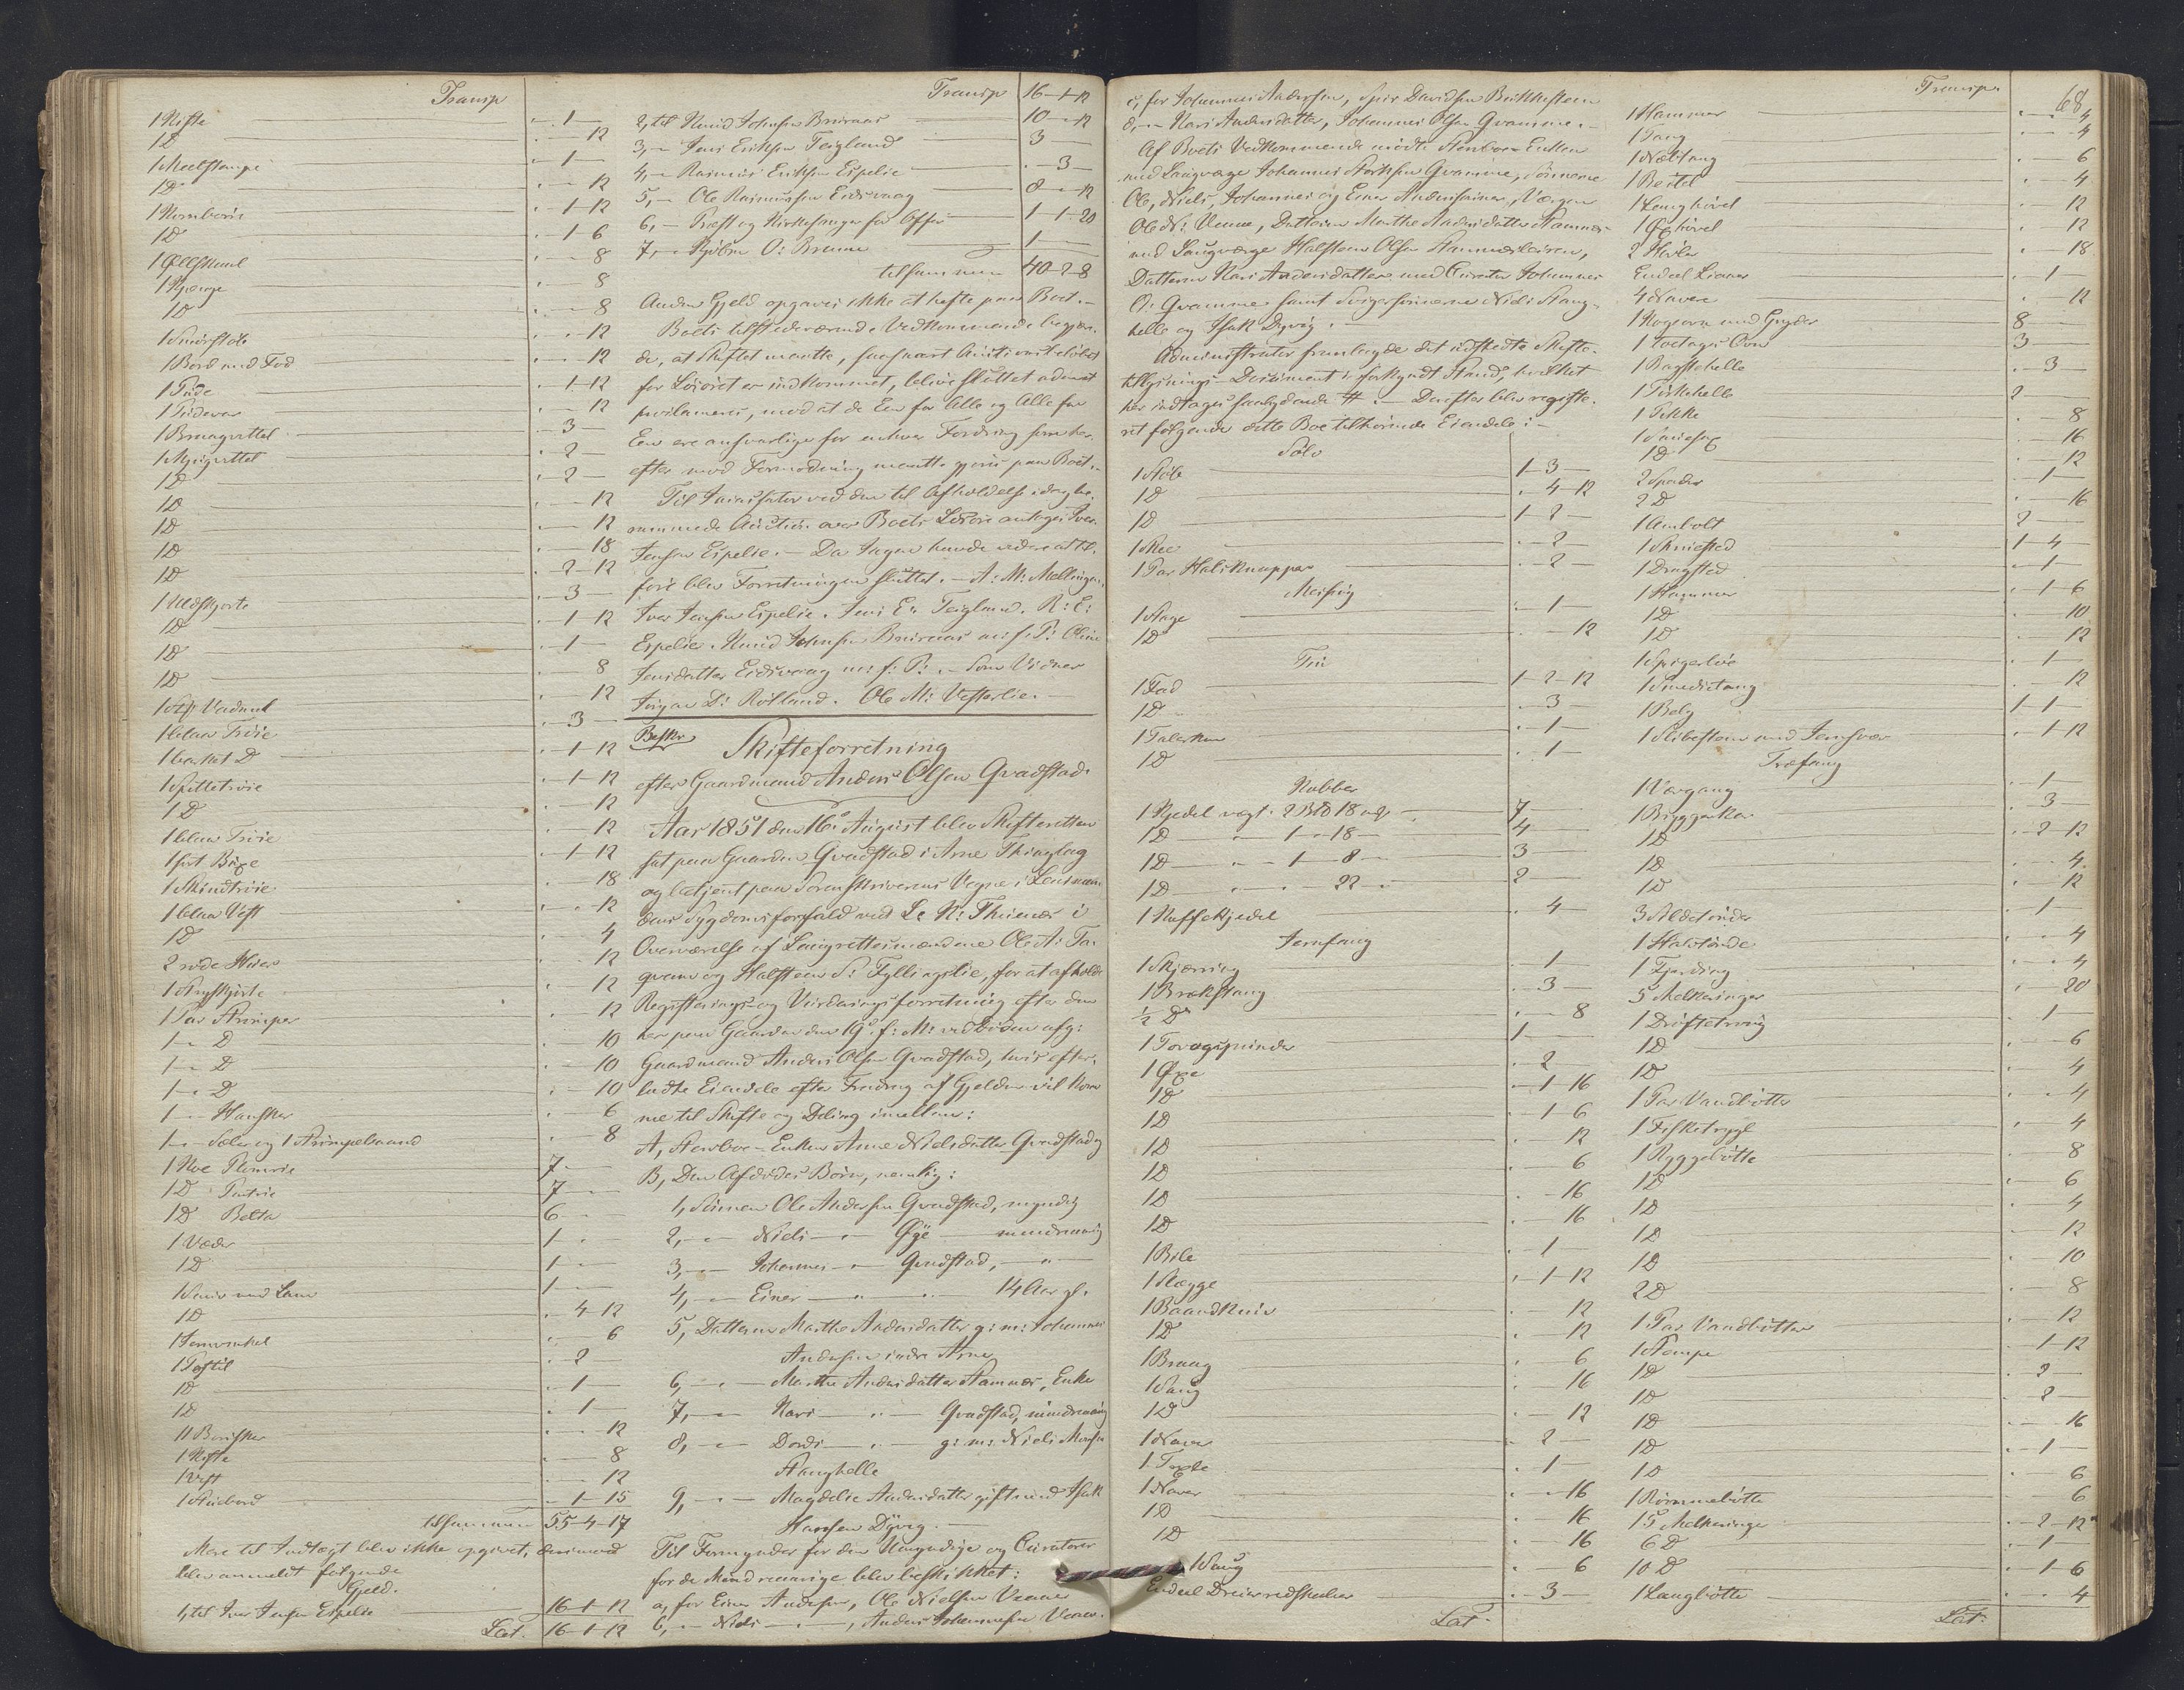 Transp
1 Kiste . 1 -
1 D . - 12
1 Meelstampe . 1 -
1 D . - 12
1 Kornbørie . 1 - 12
1 D . 1 6
1 Øllskaal . - 8
1 Kjænge . - 8
1 D . - 8
1 Smørstøb . - 12
1 Bord med Fod . - 12
1 Pude . 1 - 12
1 Pudevar . - 12
1 Bruugvættel . 3 -
1 Kjøgvættel . 2 -
1 D . 2 -
1 D . - 12
1 D . - 12
1 D . - 18
1 D . 2 - 12
1 Uldskjorte . 3 -
1 D . 1 - 12
1 D . 1 -
1 D . - 8
1 Stk Vadmel . - 12
1 blaa Trøie . 3 -
1 D . 1 - 12
1 Spittetrøie . 1 - 12
1 D . - 12
1 blaa Trøie . - 12
1 sort Buxe . 1 - 12
1 Skindtrøie . - 18
1 blaa Vest . - 12
1 D . - 4
2 røde Huer . - 12
1 . - 12
1 Par Strømper . - 12
1 - D . - 10
1 - D . - 10
1 - D . - 10
1 - Handsker . - 6
1 - Seler og 1 Strømpebaand . - 8
1 Koe Plomrei 7 -
1 D 7 -
1 D Botta 6 -
1 Væder 1 -
1 D 1 -
1 Souv med Lam 1 -
1 D . 4 - 12
1 Jernvinkel . - 6
1 Postil . 2 -
1 D . 1 -
1 D . 1 -
11 . - 12
1 Kiste . - 8
1 Vest . - 12
1 Skuebord . 1 - 15
tilsammen 55 - 4 - 17
Mere til Indtægt blev ikke opgivet, derimod
blev anmeldt følgende
Gjeld.
1, til Iver Jensen Espelie 16 - 1 - 12
Lat. 16 - 1 - 12
Transp 16 - 1 - 12
2, til Knud Johnsen Bruraas 10 - - 12
3, - Jens Eriksen Teigland 3 -
4, - Rasmus Eriksen Espelie . - 3 -
5, - Ole Rasmussen Eidsvaag 8 - - 12
6, - Præst og Kirkesanger for Offer 1 - 1 - 20
7, - O: Brenne 1 -
tilsammen 40 - 2 - 8
Anden Gjeld opgaves ikke at hefte paa Boet.
Boets tilstedeværende Vedkommende begjær-
de, at Skiftet maatte, saasnart Auctionsbeløbet
for Løsøret er indkommet, blive sluttet uden at
proclameres, mod at de Een for Alle og Alle for
Een ere ansvarlige for enhver Fordring som her-
efter mod Formodning maatte gjøres paa Boet.
Til Incassator ved den til Afholdelse idag be-
rammede Auction over Boets Løsøre antages Iver
Jensen Espelie. - Da Ingen havde videre at til-
føre blev Forretningen sluttet. - A: M: Mellingen.
Iver Jensen Espelie. Jens E: Teigland. R: E:
Espelie. Knud Johnsen Bruraas m: f: P: Oline
Jensdatter Eidsvaag m: f: P: - Som Vidner
D: Rolland. Ole M: Vesterlie. -
Beskr
Skifteforretning
efter Gaardmand Anders Olsen Gvadstad.
Aar 1851 den 16de August blev Skifteretten
sat paa Gaarden Gvadstad i Arne Thinglag
og betjent paa Sorenskriverens Vegne i Lensman-
dens Sygdomsforfald ved L. N: i
Overværelse af Laugrettesmændene Ole A: Ta-
qvam og Halsteen S: Fyllingslie, for at afholde
Registerings- og Vurderingsforretning efter den
her paa Gaarden den 19de f: M: ved Døden afg:
Gaardmand Anders Olsen Gvadstad, hvis efter-
ladte Eiendele efter Fradrag af Gjelden vil kom-
me til Skifte og Deling imellem:
A, Stervboe-Enken Anne Nielsdatter Gvadstad og
B, Den Afdødes Børn, nemlig:
1, Sønnen Ole Andersen Gvadstad, myndig
2, - Niels - Øye mindreaarig
3, - Johannes - Gvadstad, - " -
4, - Einer - " - 14 Aar gl.
5, Datteren Marthe Andersdatter g: m: Johannes
Andersen indre Arne
6, - Marthe Andersdatter Stamnæs, Enke
7, - Kari - " - Gvadstad, mindreaarig
8, - Dordi - " - g: m: Niels Monsen
Stanghelle
9, - Magdele Andersdatter gift med Isak
Hansen Dyvig. -
Til Formynder for den Umyndige og Curatorer
for de Mindreaarige blev beskikket:
a, for Einer Andersen, Ole Nielsen Veame
b, - Niels - , Anders Johannesen Veame.
c, for Johannes Andersen, Sjur Davidsen
d, - Kari Andersdatter, Johannes Olsen Gvamme. -
Af Boets Vedkommende mødte Stervboe-Enken
med Laugværge Johannes Gvamme, Sønnerne
Ole, Niels, Johannes og Einer Anderssønner, Værgen
Ole N: Veame, Datteren Marthe Andersdatter Stamnæs
med Laugværge Halsteen Olsen
Datteren Kari Andersdatter med Curator Johannes
O: Gvamme samt Svigersønnerne Niels Stang-
helle og Isak Dyvig. -
Administrator fremlagde det udstedte Skifte-
tillysnings-Document i forkyndt Stand, hvilket
her indtages saalydende #. - Derefter blev registe-
ret følgende dette Boe tilhørende Eiendele: -
Sølv
1 Støb 1 - 3 -
1 D . 4 - 12
1 D 1 - 2 -
1 Skee . 2 -
1 Par Halsknapper . 2 -
Messing
1 Stage . 1 -
1 D . - 12
Tin
1 Fad 1 - 2 - 12
1 D . 3 -
1 Talerken . 1 -
1 D . 1 -
Kobber
1 Kjedel vægt. 2 B℔ 18 mk 7 -
1 D - " - 1 - 18 - 4 -
1 D - " - 1 - 8 - 3 -
1 D - " - 22 - 2 -
1 Kaffekjedel . 4 -
Jernfang
1 Skjæring . 1 -
1 Brækstang . 3 -
½ D . - 8
1 1 -
1 Øxe . 2 -
1 D . 1 - 16
1 D . 1 - 6
1 D . - 12
1 D . - 6
1 D . - 16
1 D . - 16
1 Bile . 1 -
1 Slægge . 1 - 12
1 Baandkniv . - 12
1 D . - 12
1 . - 6
1 Saug . - 16
1 D . - 12
1 Naver . 2 -
1 . 1 -
1 Naver . - 16
1 D . - 16
1 D . - 16
1 Saug . - 6
Endeel Dreierredskaber . 3 -
Lat.
Transp. 68
1 Hammer . - 4
1 Tang . - 4
1 . - 6
1 Beitel . - 4
1 Langhøvel . - 12
1 . - 12
2 Høvler . - 18
Endeel Liaaer . 1 -
4 Navere . - 12
1 Kogeovn med Gryder 8 -
1 Toetages Ovn 3 -
1 Bagstehelle . 3 -
1 2 -
1 . - 8
1 Sauesax . - 16
1 D . - 12
2 Spader . 1 -
2 D . - 16
1 Ambolt 2 -
1 Skruested 1 - 4 -
1 Dragsted . 1 -
1 Hammer . 1 - 6
1 D . - 10
1 D . - 12
1 Spigerloe . 1 -
1 Smedietang . - 12
1 Belg 1 - 1 -
1 Slibesteen med Jernsveiv . 1 - 12
Træfang
1 . 1 -
1 Bryggekar . 3 -
1 D . 2 - 12
1 D . - 4
1 D . - 12
3 Sildetønder . 1 -
1 Halvtønde . - 4
1 Fjerding . - 4
5 Melkeringer . - 20
1 Drøftetroug . 1 -
1 D . - 6
1 D . - 4
1 Par Vandbøtter . - 4
1 Fisketrygl . - 4
1 Ryggebøtte . - 8
1 D . - 6
1 D . - 4
1 D . - 12
1 D . - 10
2 D . - 8
1 Par Vandbøtter . - 12
1 Stampe . 1 - 12
1 D . 2 -
1 D . 2 -
1 D . - 16
1 D . 1 -
1 D . - 6
1 Rømmebøtte . - 6
15 Melkeringe . 2 - 12
6 D . 1 -
10 D . 1 - 6
1 Langbøtte . - 4
Lat.